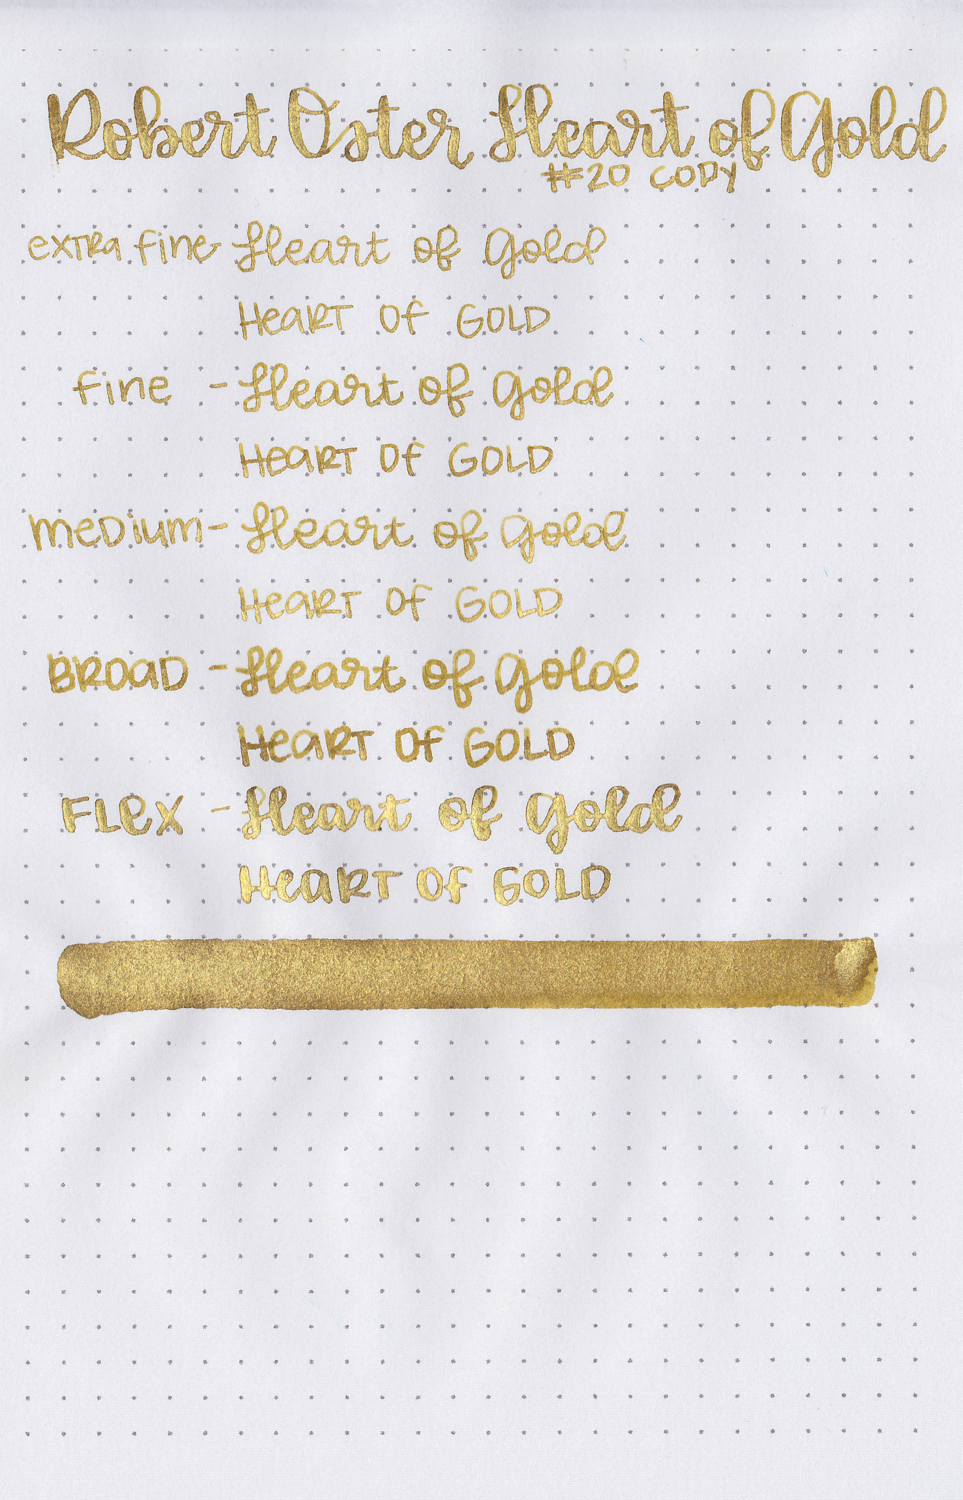 Robert Oster Heart of Gold
#20 COPY
extra fine Heart of Gold
HeART OF GOLD
fine - Heart of Gold
HeART OF GOLD
meDium - Heart of Gold
HeART OF GOLD
BROAD - Heart of Gold
HeART OF GOLD
FLex - Heart of Gold
HeART OF GOLD